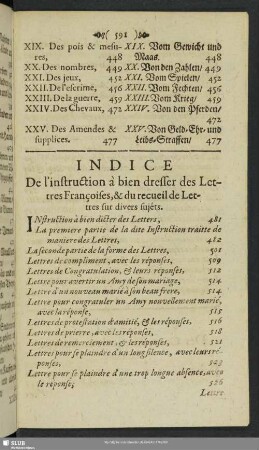 ( 592 )
XIX. Des pois & mesu- XIX. Vom Gewicht und
res, 448 Maas. 448
XX. Des nombres, 449 XX. Von den Zahlen/ 449
XXI. Des jeux, 452 XXI. Vom Spielen/ 452
XXII. De l'escrime, 456 XXII. Vom Fechten/ 456
XXIII. De la guerre, 459 XXIII. Vom Krieg/ 459
XXIV. Des Chevaux, 472 XXIV. Von den Pferden/
472
XXV. Des Amendes & XXV. Von Geld-Ehr- und
supplices. 477 Leibs-Straffen/ 477
INDICE
De l'instruction à bien dresser des Let-
tres Françoises, & du recueil de Let-
tres sur divers sujets.
INstruction à bien dicter des Letters, 481
La premiere partie de la dite Instruction traitte de
maniere des Lettres, 482
La seconde partie de la forme des Lettres, 502
Lettres de compliment, avec les réponses, 509
Lettres de Congratulation, & leurs réponses, 512
Lettre pour avertir un Amy de son mariage, 514
Lettre d'un nouveau marié à son beau frere, 514
Lettre pour congratuler un Amy nouvellement marié,
avec la réponse, 515
Lettres de protestation d'amitié, & les réponses, 516
Lettres de prierre, avec les réponses, 518
Lettres de remerciement, & les réponses, 521
Lettres pour se plaindre d'un long silence, avec leurs ré-
ponses, 523
Lettre pour se plaindre d'une trop longue absence, avec
le reponse, 526
Lettre
SLUB